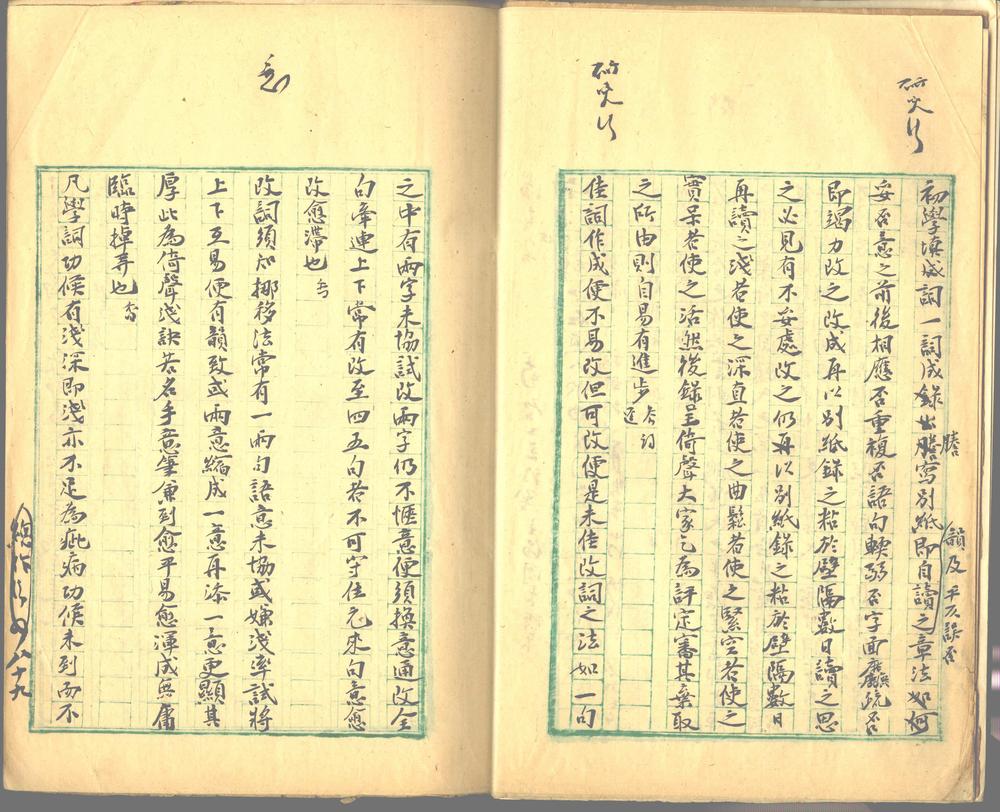 研究后
初學填成詞一詞成錄出謄寫別紙即自讀之章法如何
謄
韻及平仄誤否
妥否意之前後相應否重複否語句輭弱否字面麤疏否
即竭力改之改成再以別紙錄之粘於壁隔數日讀之思
之必見有不妥處改之仍再以別紙錄之粘於壁隔數日
再讀之淺者使之深直者使之曲鬆者使之緊空者使之
實呆者使之活然後錄呈倚聲大家乞為評定審其棄取
之所由則自易有進步
研究
佳詞作成便不易改但可改便是未佳改詞之法如一句
之中有兩字未協試改兩字仍不愜意便須換意通改全
句牽連上下常有改至四五句者不可守住元來句意愈
改愈滯也
改詞須知挪移法常有一兩句語意未協或嫌淺率試將
上下互易便有韻致或兩意縮成一意再添一意更顯其
厚此為倚聲淺訣若名手意筆兼到愈平易愈渾成無庸
臨時掉弄也
凡學詞功候有淺深即淺亦不足為疵病功候未到而不
八十九